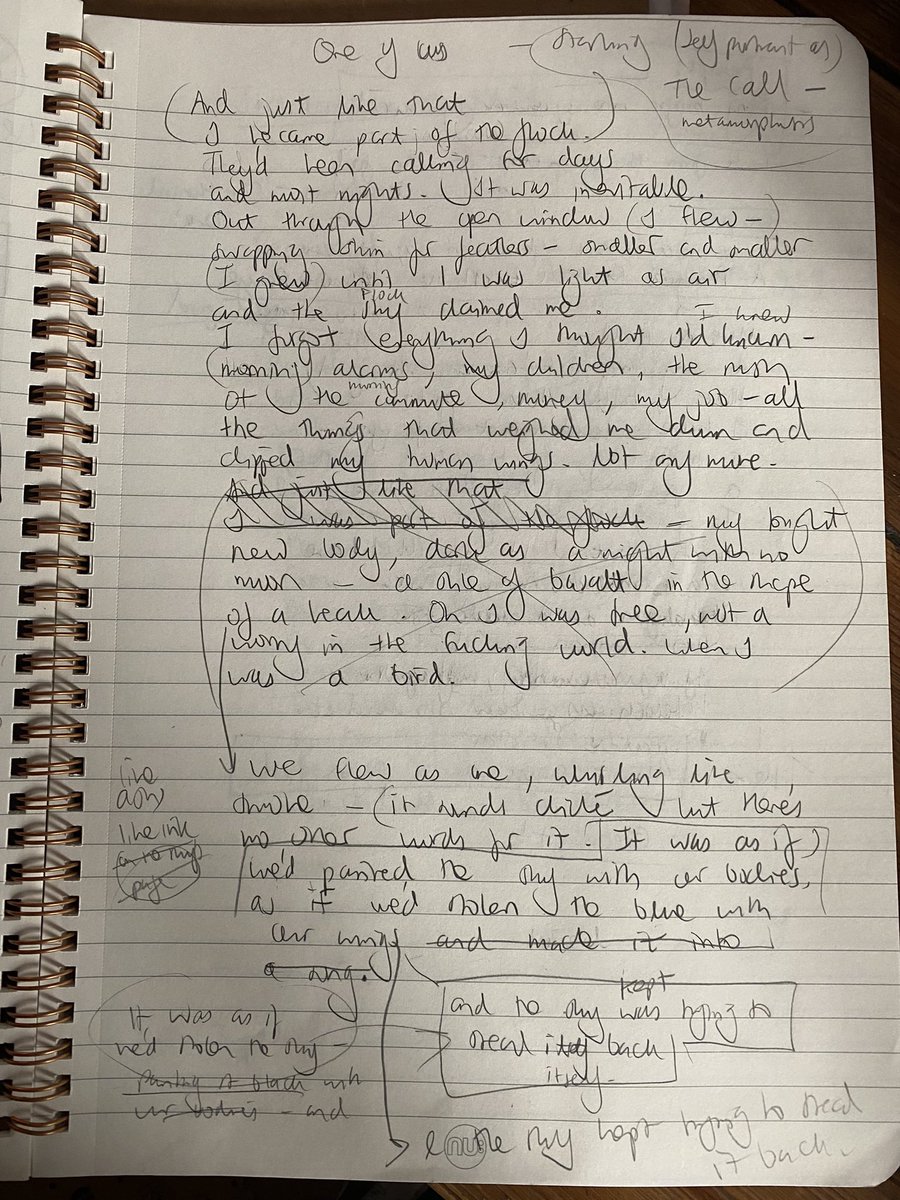 One of us - starling (self portrait as)
The call -
metamorphosis
(And just like that
I became part of the flock.)
They'd been calling for days
and most nights. It was inevitable.
Out through the open window (I flew -)
swapping skin for feathers - smaller and smaller
(I grew) until I was light as air
flock
and the sky claimed me.
I knew
I forgot everything I thought I'd known -
(morning) alarms, my children, the rush
morning
of the commute, money, my job - all
the things that weighed me down and
clipped my human wings. Not any more.
And just like that
I was part of the flock - my bright
new body, dark as a night with no
moon - a of basalt in the shape
of a beak. Oh I was free, not a
worry in the fucking world. When I
was a bird.
We flew as one, whirling like
smoke - (it sounds cliché but there's
no other words for it. It was as if)
we'd painted the sky with our bodies,
as if we'd stolen the blue with
our wings and made it into
a song.
like
like ink
on to the
page
kept
and the sky was trying to
steal itself back
itself -
It was as if
we'd stolen the sky -
painting it black with
our bodies - and
the sky kept trying to steal
it back.